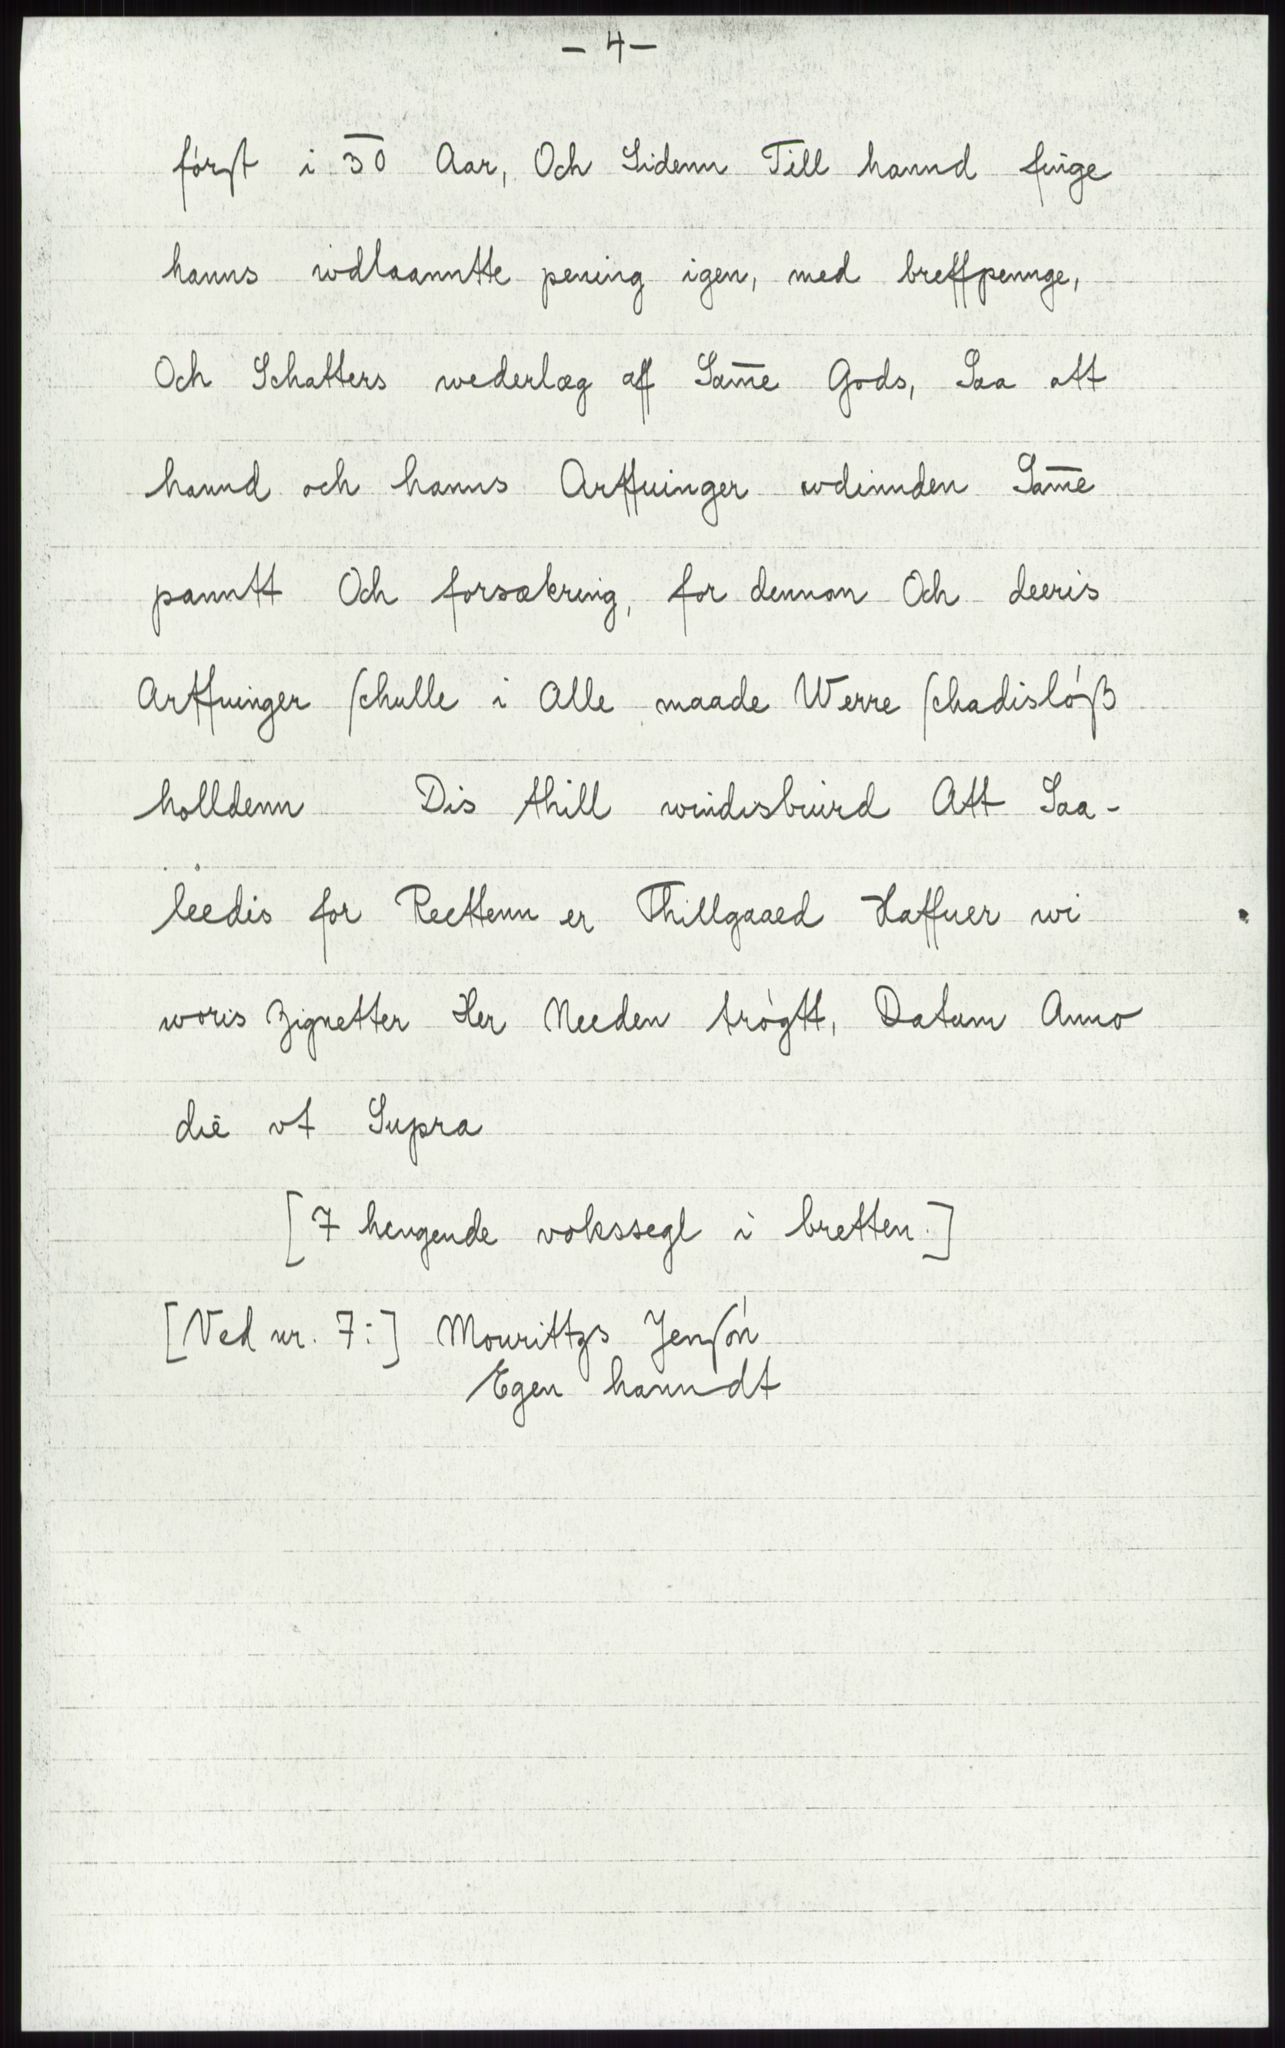 - 4 -
fórst i 3̅0̅ Aar, Och Sidenn Till hannd finge
hanns wdlaanntte pening igen, med breffpennge,
Och Schatters wederlæg aff Sam̅e Gods, Saa att
hannd och hanns Arffuinger wdinnden Sam̅e
panntt Och forsækring, for dennom Och deeris
Arffuinger schulle i Alle maade Werre schadislóß
holldenn Dis thill windisbiurd Att Saa-
leedis for Rettenn er Thillgaaed Haffuer wi
woris Zignetter Her Needen trógtt, Datum Anno
die vt Supra
[7 hengende vokssegl i bretten.]
[Ved nr. 7:] Mourittzs Jensón
Egen hanndt